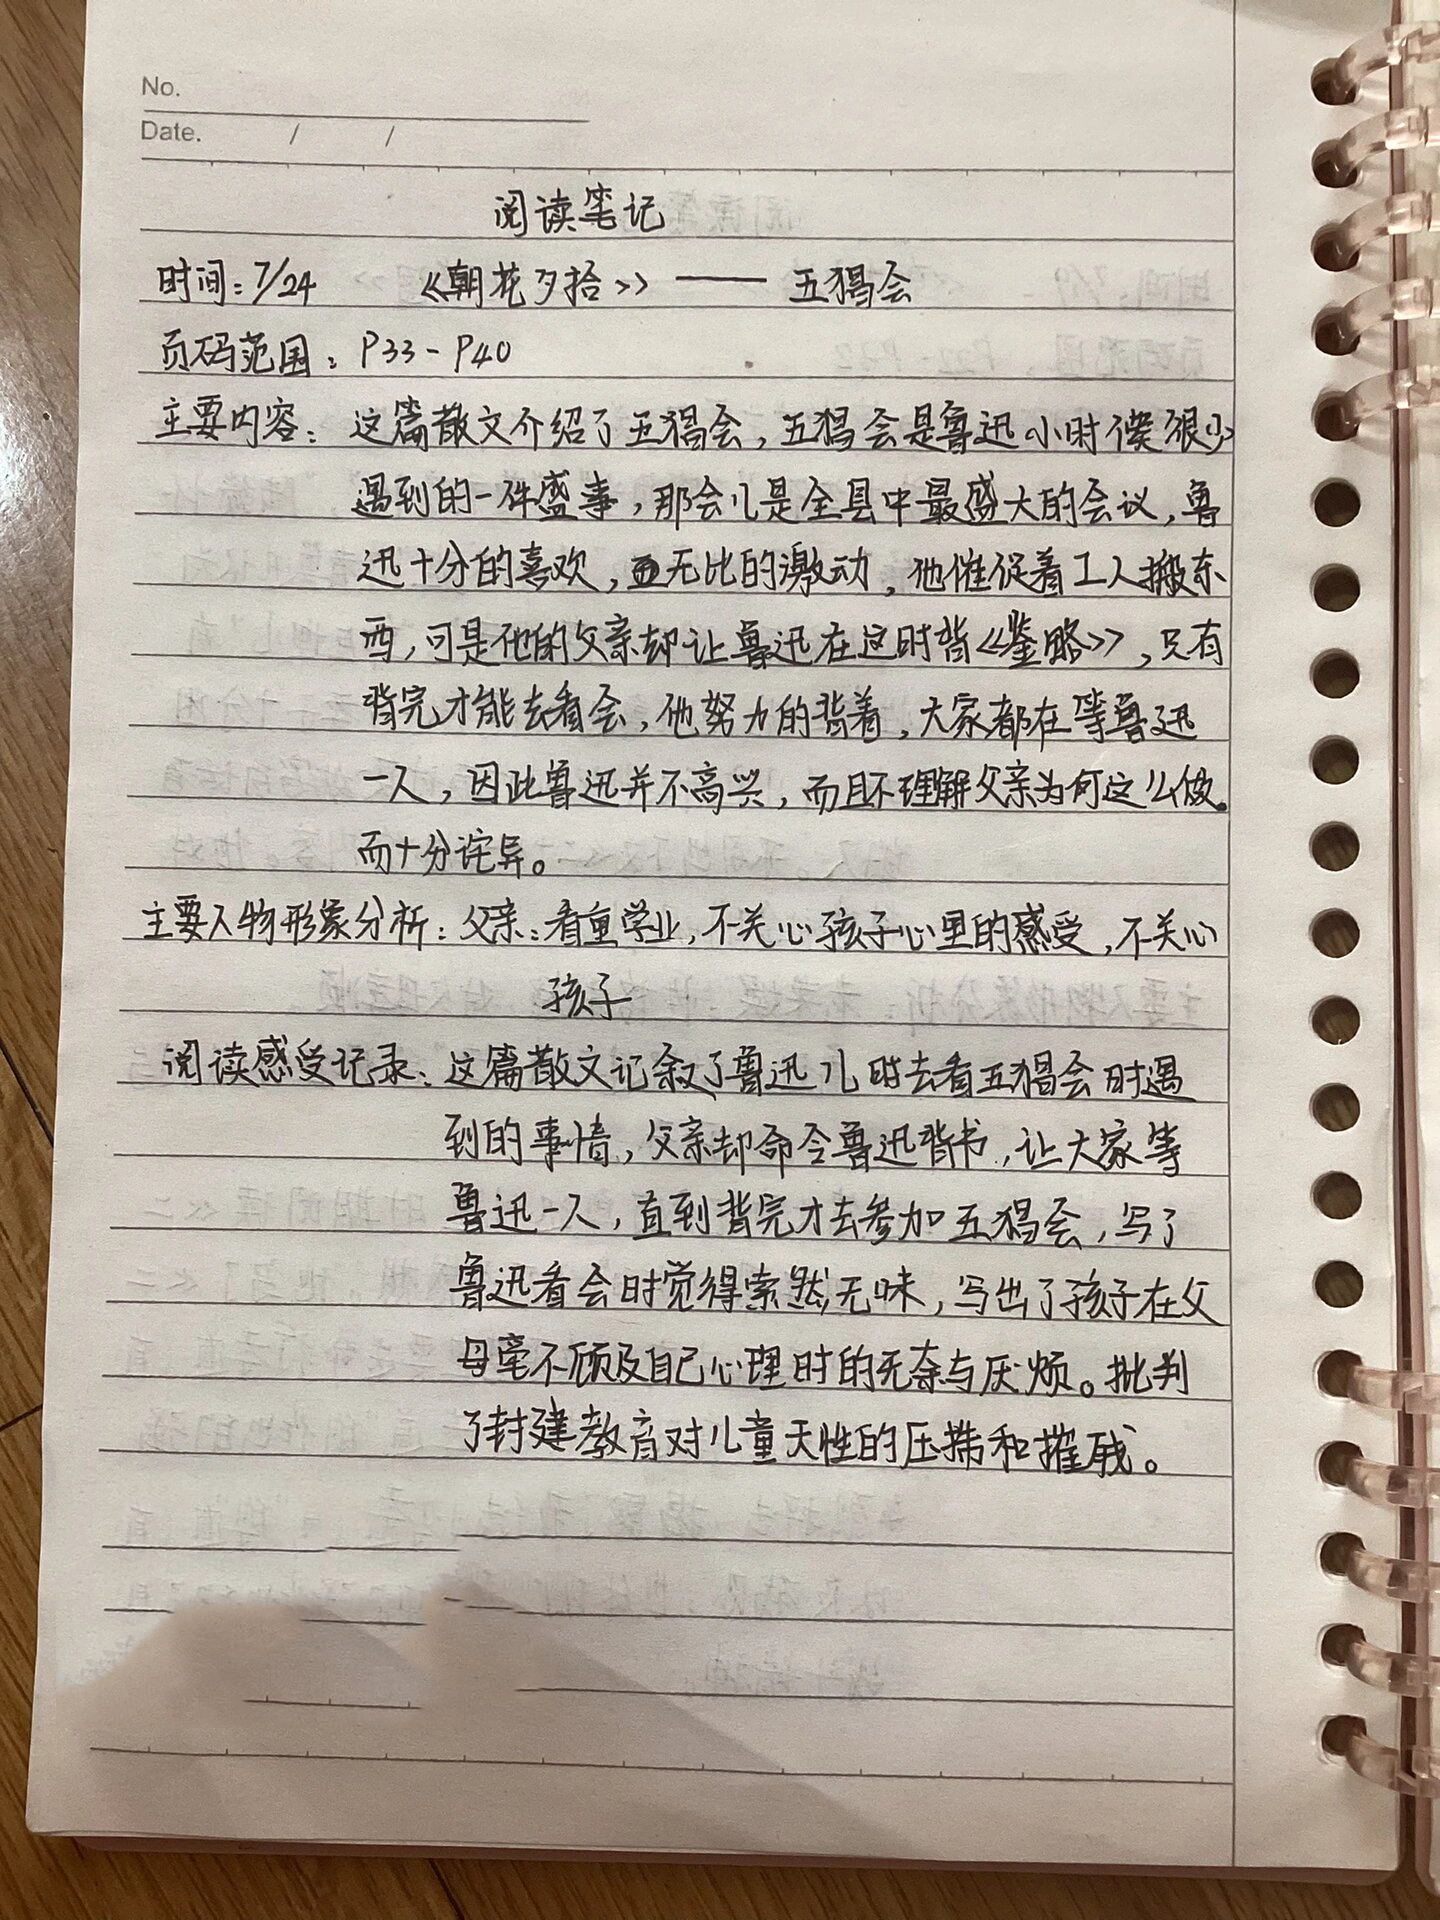 No.
Date. / /
阅读笔记
时间:7/24 《朝花夕拾》—— 五猖会
页码范围:P33-P40
主要内容:这篇散文介绍了五猖会,五猖会是鲁迅小时候很少
遇到的一件盛事,那会儿是全县中最盛大的会议,鲁
迅十分的喜欢,无比的激动,他催促着工人搬东
西,可是他的父亲却让鲁迅在这时背《鉴略》,只有
背完才能去看会,他努力的背着,大家都在等鲁迅
一人,因此鲁迅并不高兴,而且不理解父亲为何这么做。
而十分诧异。
主要人物形象分析:父亲:看重学业,不关心孩子心里的感受,不关心
孩子
阅读感受记录:这篇散文记叙了鲁迅儿时去看五猖会时遇
到的事情,父亲却命令鲁迅背书,让大家等
鲁迅一人,直到背完才去参加五猖会,写了
鲁迅看会时觉得索然无味,写出了孩子在父
母毫不顾及自己心理时的无奈与厌烦。批判
了封建教育对儿童天性的压制和摧残。